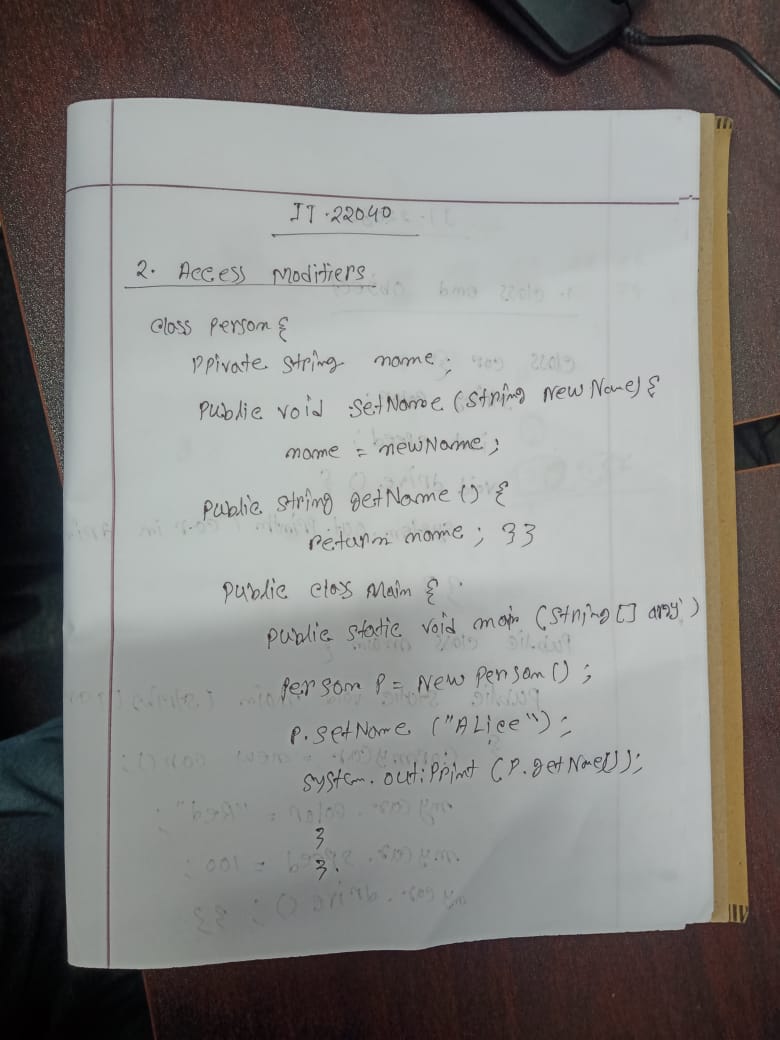 IT-22040
2. Access Modifiers
class person {
private string name ;
public void setName (string newName) {
name = newName ;
public string getName () {
return name ; }}
public class Main {
public static void main (string [] array)
person p = New person () ;
p.setName ("Alice") ;
system.out.print (p.getName()) ;
}
}.